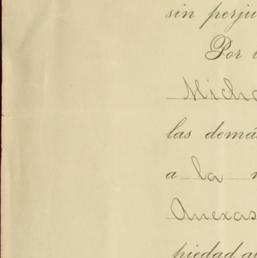 sin perju
Por
Micho
las demá
a la
Anexas
piedad a